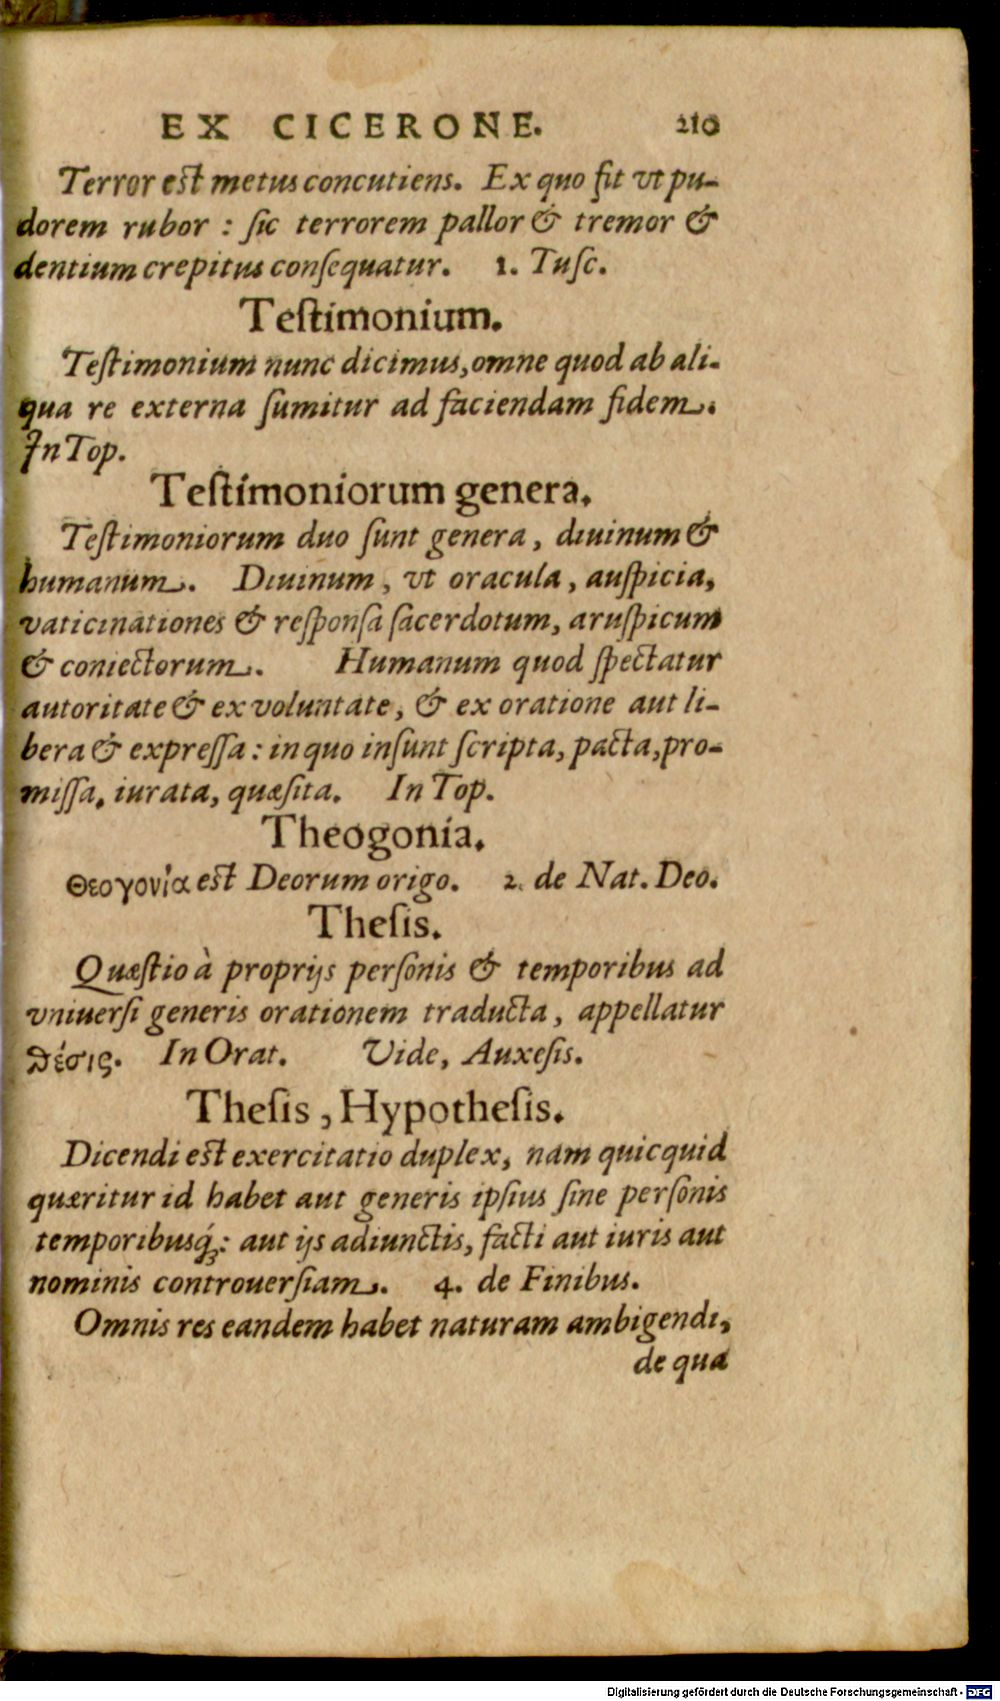 EX CICERONE. 210
Terror est metus concutiens. Ex quo fit vt pu-
dorem rubor : sic terrorem pallor & tremor &
dentium crepitus consequatur. 1. Tusc.
Testimonium.
Testimonium nunc dicimus, omne quod ab ali-
qua re externa sumitur ad faciendam fidem.
In Top.
Testimoniorum genera.
Testimoniorum duo sunt genera, diuinum &
humanum. Diuinum, vt oracula, auspicia,
vaticinationes & responsa sacerdotum, aruspicum
& coniectorum. Humanum quod spectatur
autoritate & ex voluntate, & ex oratione aut li-
bera & expressa: in quo insunt scripta, pacta, pro-
missa, iurata, quæsita. In Top.
Theogonia.
Θεογονία est Deorum origo. 2. de Nat. Deo.
Thesis.
Quæstio à proprijs personis & temporibus ad
vniuersi generis orationem traducta, appellatur
θέσις. In Orat. Vide, Auxesis.
Thesis, Hypothesis.
Dicendi est exercitatio duplex, nam quicquid
quæritur id habet aut generis ipsius sine personis
temporibusq́;: aut ijs adiunctis, facti aut iuris aut
nominis controuersiam. 4. de Finibus.
Omnis res eandem habet naturam ambigendi,
de qua
Digitalisierung gefördert durch die Deutsche Forschungsgemeinschaft - DFG